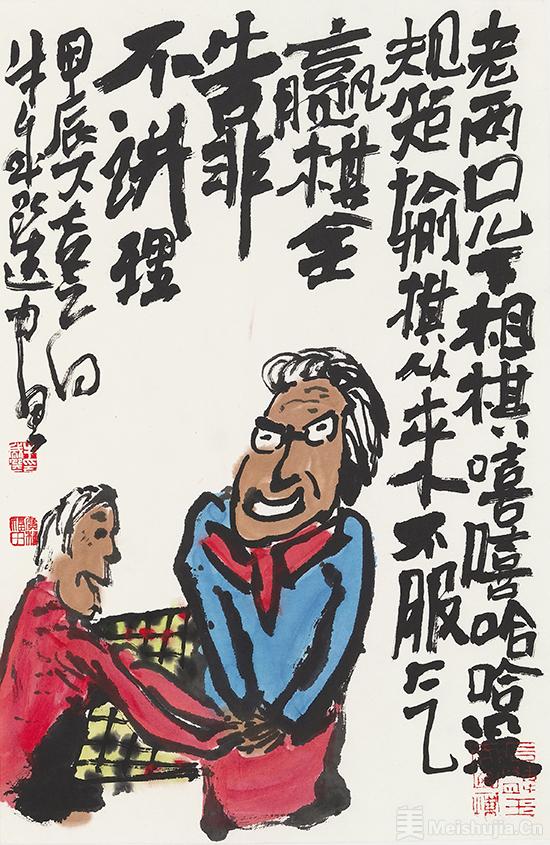 老两口儿下相棋嘻嘻哈哈没
规矩输棋从来不服气
赢棋全
靠非
不讲理
甲辰大吉之日
美 Meishujia.Cn